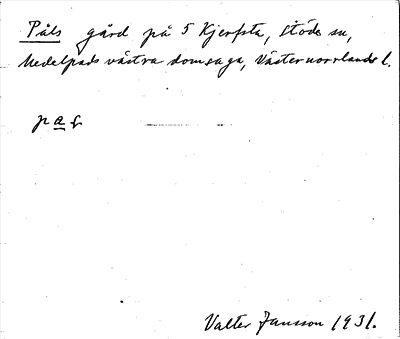 Påls gård på 5 Kjerfsta, Stöde sn,
Medelpads västra domsaga, Västernorrlands l.
Valter Jansson 1931.